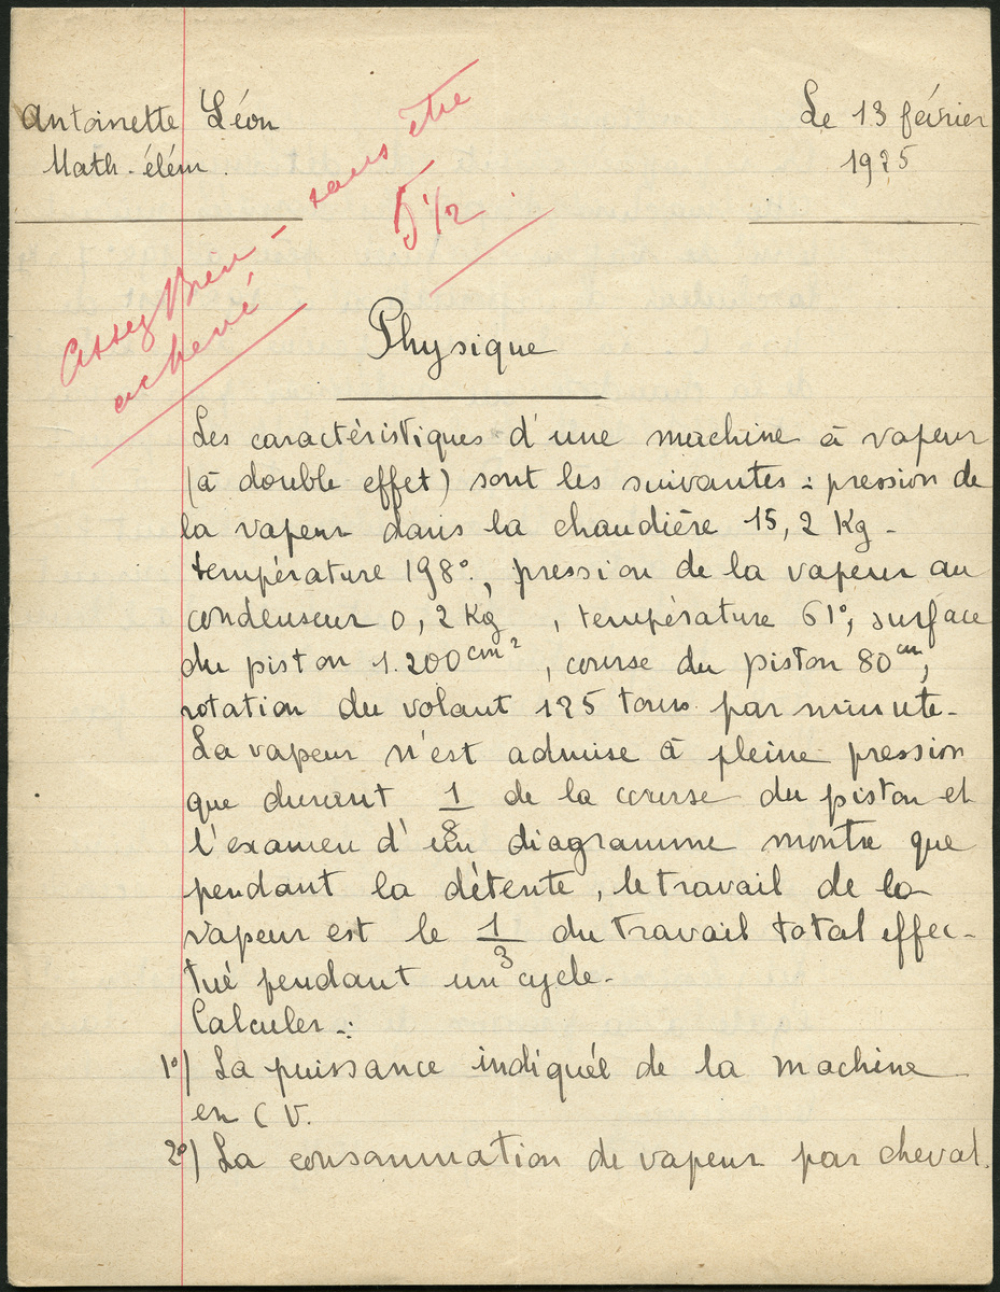 Antoinette Léon
Math. élém.
Le 13 février
1925
Assez Bien - sans être
achevé
5 1/2
Physique
Les caractéristiques d'une machine à vapeur
(à double effet) sont les suivantes : pression de
la vapeur dans la chaudière 15,2 Kg -
température 198°, pression de la vapeur au
condenseur 0,2 Kg, température 61°, surface
du piston 1.200 cm², course du piston 80 cm,
rotation du volant 125 tours par minute.
La vapeur n'est admise à pleine pression
que durant 1/8 de la course du piston et
l'examen d'un diagramme montre que
pendant la détente, le travail de la
vapeur est le 1/3 du travail total effec-
tué pendant un cycle.
Calculer :
1°) La puissance indiquée de la machine
en C V.
2°) La consommation de vapeur par cheval.